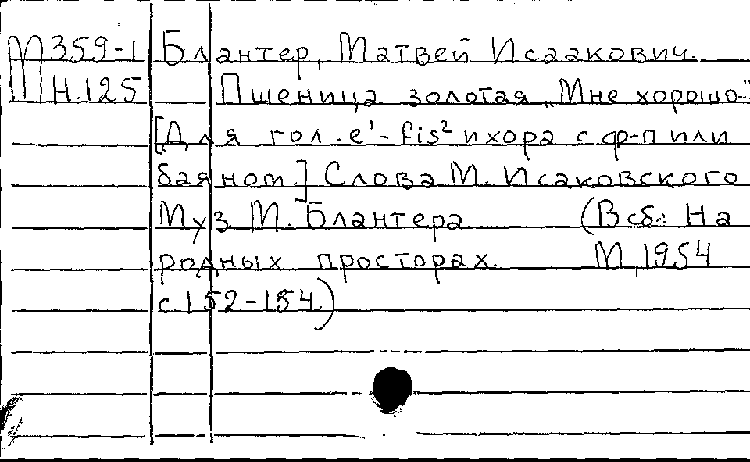 М359-1 Блантер, Матвей Исаакович.
Н.125 Пшеница золотая „Мне хорошо-"
[Для гол. e¹-fis² и хора с ф-п или
баяном] Слова М. Исаковского
Муз М. Блантера (В сб.: На
родных просторах. М, 1954
с. 152-154.)